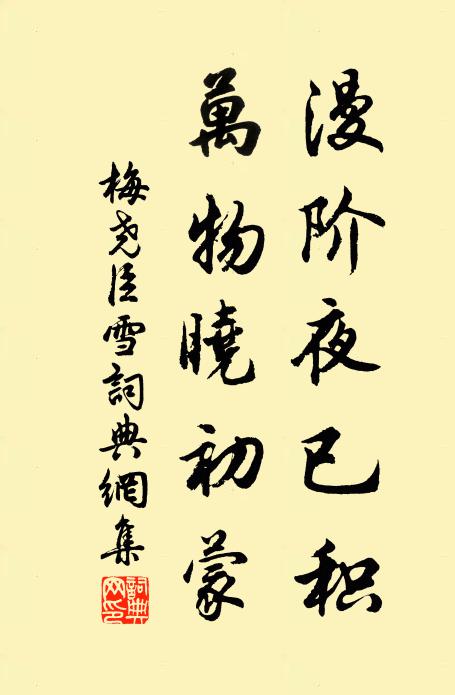 漫阶夜已积
萬物曉初蒙
梅尧臣雪詞典網集
詞典网印